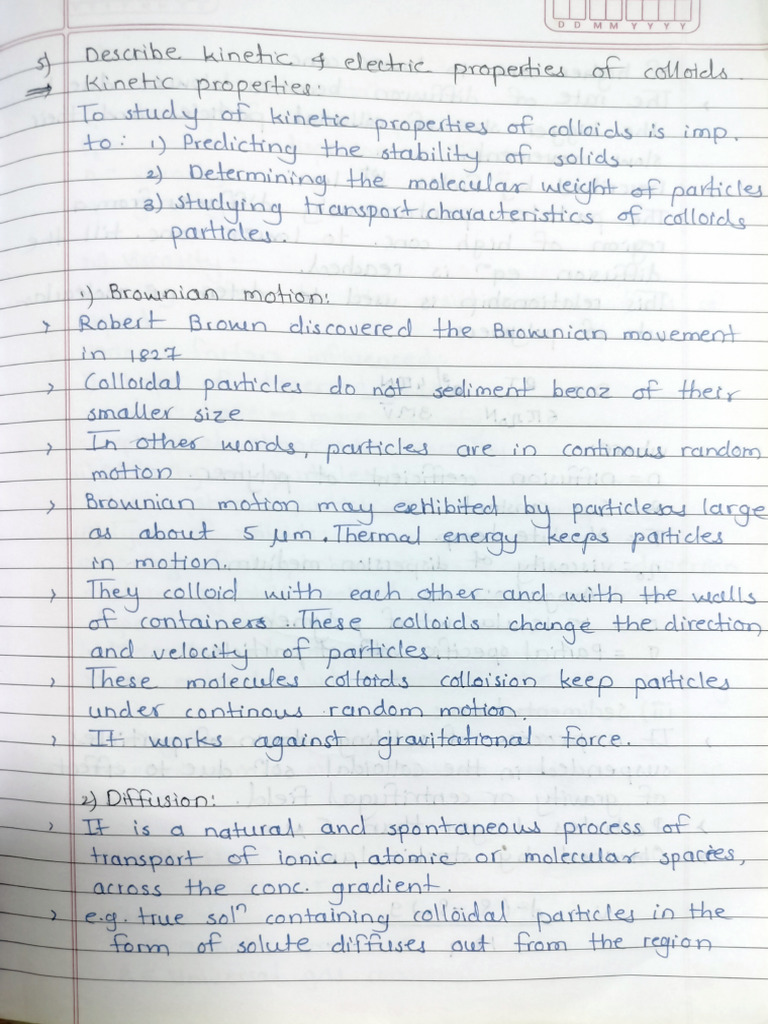 D D M M Y Y Y Y
5) Describe kinetic & electric properties of colloids.
⇒ Kinetic properties:
To study of kinetic properties of colloids is imp.
to: 1) Predicting the stability of solids.
2) Determining the molecular weight of particles
3) studying transport characteristics of colloids
particles.
1) Brownian motion:
> Robert Brown discovered the Brownian movement
in 1827
> Colloidal particles do not sediment becoz of their
smaller size
> In other words, particles are in continous random
motion
> Brownian motion may exhibited by particles as large
as about 5 μm. Thermal energy keeps particles
in motion.
> They colloid with each other and with the walls
of containers. These colloids change the direction
and velocity of particles.
> These molecules colloids colloision keep particles
under continous random motion.
> It works against gravitational force.
2) Diffusion:
> It is a natural and spontaneous process of
transport of ionic, atomic or molecular spacies,
across the conc. gradient.
> e.g. true solⁿ containing colloidal particles in the
form of solute diffuses out from the region